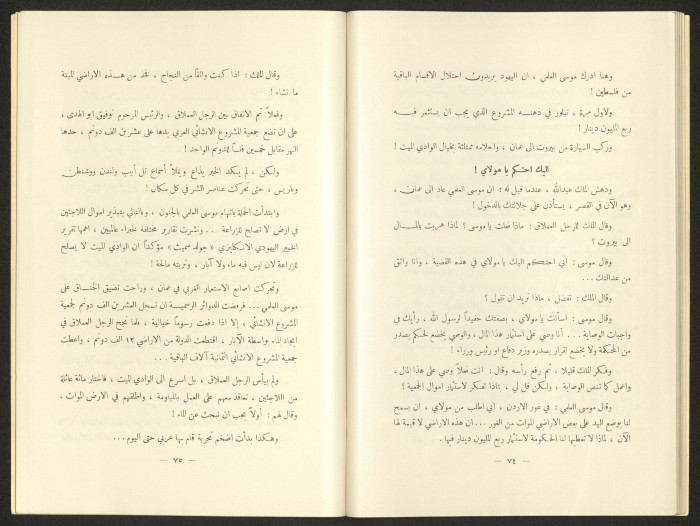 وهنا ادرك موسى العلمي ، ان اليهود يريدون احتلال الاقسام الباقية
من فلسطين !
ولاول مرة ، تبلور في ذهنه المشروع الذي يجب ان يستثمر فيه
ربع المليون دينار !
وركب السيارة من بيروت الى عمان ، واحلامه ممتلئة بخيال الوادي الميت !
اليك احتكم يا مولاي !
ودهش الملك عبدالله ، عندما قيل له : ان موسى العلمي عاد الى عمان ،
وهو الآن في القصر ، يستأذن على جلالتك بالدخول !
وقال الملك للرجل العملاق : ماذا فعلت يا موسى ؟ لماذا هربت بالمال
الى بيروت ؟
وقال موسى : اني احتكم اليك يا مولاي في هذه القضية ، وانا واثق
من عدالتك ...
وقال الملك: تفضل ، ماذا تريد ان تقول ؟
وقال موسى : اسألك يا مولاي ، بصفتك حفيداً لرسول الله ، رأيك في
واجبات الوصاية ... أنا وصي على استثمار هذا المال ، والوصي يخضع لحكم يصدر
من المحكمة ولا يخضع لقرار يصدره وزير دفاع او رئيس وزراء !
وفكر الملك قليلا ، ثم رفع رأسه وقال : انت فعلاً وصي على هذا المال ،
واعمل كما تنص الوصاية ، ولكن قل لي ، بماذا تفكر لاستثمار اموال الجمعية ؟
وقال موسى العلمي : في غور الاردن ، اني اطلب من مولاي ، ان يسمح
لنا بوضع اليد على بعض الاراضي الموات من الغور ... ان هذه الاراضي لا قيمة لها
الآن ، لماذا لا تعطيها لنا الحكومة لاستثمار ربع المليون دينار فيها .
— ٧٤ —
وقال الملك : اذا كنت واثقاً من النجاح ، فخذ من هذه الاراضي الميتة
ما تشاء !
وفعلاً تم الاتفاق بين الرجل العملاق ، والرئيس المرحوم توفيق ابو الهدى ،
على ان تضع جمعية المشروع الانشائي العربي يدها على عشرين الف دونم ، حدها
النهر مقابل خمسين فلساً للدونم الواحد !
ولكن ، لم يكد الخبر يذاع ويملأ أسماع تل أبيب ولندن وواشنطن
وباريس ، حتى تحركت عناصر الشر في كل مكان !
وابتدأت الحملة باتهام موسى العلمي بالجنون ، وبالتالي بتبذير اموال اللاجئين
في ارض لا تصلح للزراعة ... ونشرت تقارير مختلفة لخبراء عالميين ، اهمها تقرير
الخبير اليهودي الانكليزي « جولد سميث » مؤكداً ان الوادي الميت لا يصلح
للزراعة لان ليس فيه ماء ولا آبار ، وتربته مالحة !
وتحركت اصابع الاستعمار الغربي في عمان ، وراحت تضيق الخناق على
موسى العلمي ... فرفضت الدوائر الرسمية ان تسجل العشرين الف دونم لجمعية
المشروع الانشائي ، إلا اذا دفعت رسوماً خيالية ، فلما نجح الرجل العملاق في
ايجاد الماء بواسطة الآبار ، اقتطعت الدولة من الاراضي ١٢ الف دونم ، واعطت
جمعية المشروع الانشائي الثمانية آلاف الباقية ...
ولم ييأس الرجل العملاق ، بل اسرع الى الوادي الميت ، فاختار مائة عائلة
من اللاجئين ، تعاقد معهم على العمل بالمياومة ، واطلقهم في الارض الموات ،
وقال لهم : أولاً يجب ان نبحث عن الماء !
وهكذا بدأت اضخم تجربة قام بها عربي حتى اليوم ...
— ٧٥ —